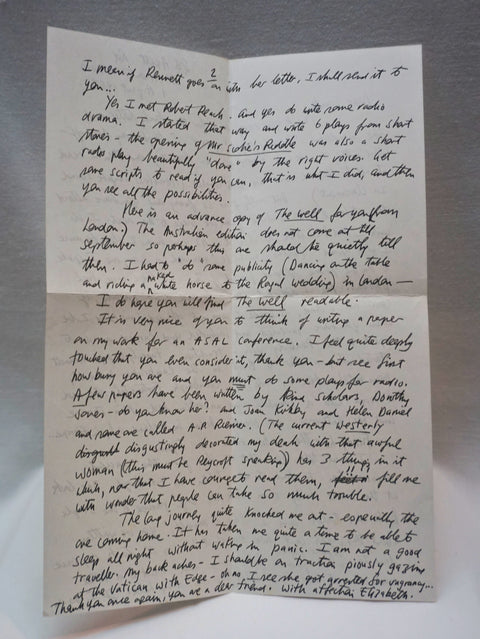 2
I mean if Rennett goes on with her letter, I shall send it to
you...
Yes I met Robert Peach. And yes do write some radio
drama. I started that way and wrote 6 plays from short
stories - the opening of Mr Scobie's Riddle was also a short
radio play beautifully "done" by the right voices. Get
some scripts to read if you can, that is what I did, and then
you see all the possibilities.
Here is an advance copy of The Well for you (from
London) The Australian edition does not come out till
September so perhaps this one should be quietly till
then. I had to "do" some publicity (Dancing on the table
and riding naked white horse to the Royal Wedding) in London —
I do hope you will find The Well readable.
It is very nice of you to think of writing a paper
on my work for an ASAL conference. I feel quite deeply
touched that you even consider it, thank you - but see first
how busy you are and you must do some plays for radio.
A few papers have been written by kind scholars, Dorothy
Jones - do you know her? and Joan Kirkby and Helen Daniel
and someone called A.P. Riemer. (The current Westerly
disgustingly decorated my death with that awful
woman (this must be Peycroft speaking) has 3 things in it
which, now that I have courage to read them, fill me
with wonder that people can take so much trouble.
The long journey quite knocked me out - especially the
one coming home. It has taken me quite a time to be able to
sleep all night without waking in panic. I am not a good
traveller. My back aches - I should be on traction piously gazing
at the Vatican with Edge - oh no I see she got arrested for vagrancy...
Thank you once again, you are a dear friend. With affection Elizabeth.